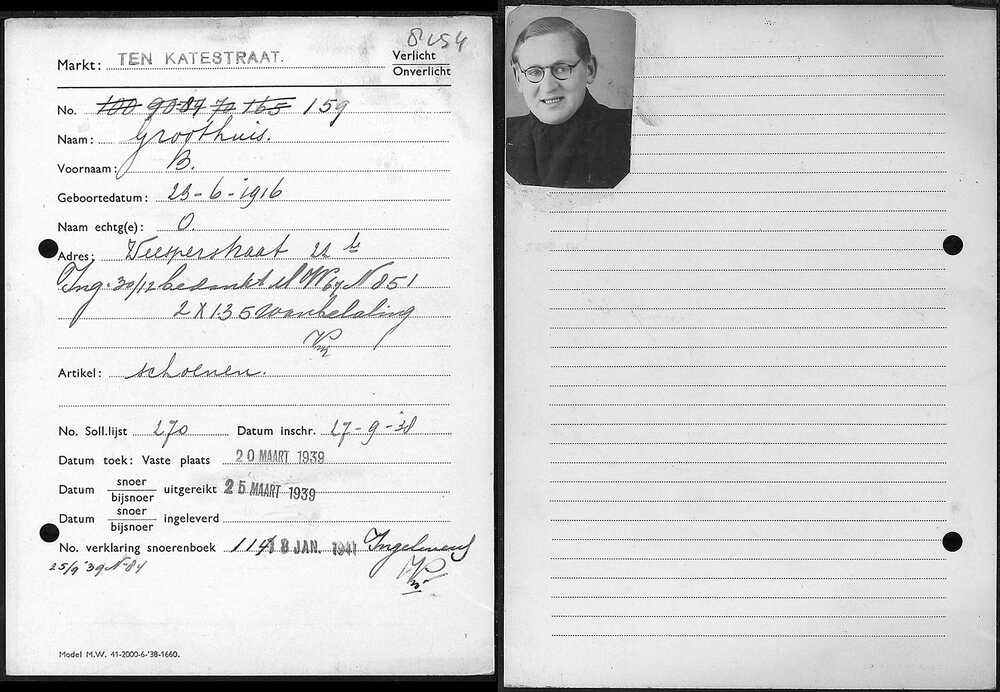 8454
Markt: TEN KATESTRAAT. Verlicht
Onverlicht
No. 100 90 84 70 165 159
Naam: Groothuis.
Voornaam: B.
Geboortedatum: 23-6-1916
Naam echtg(e): O.
Adres: Weesperstraat 22
Ing. 30/12 bedankt N 851
2 X 135 wanbetaling
Artikel: schoenen.
No. Soll.lijst 270 Datum inschr. 27-9-38
Datum toek: Vaste plaats 20 MAART 1939
Datum snoer/bijsnoer uitgereikt 25 MAART 1939
Datum snoer/bijsnoer ingeleverd
No. verklaring snoerenboek 114 18 JAN. 1941 Ingeleverd
25/9 '39 N 84
Model M.W. 41-2000-6-'38-1660.